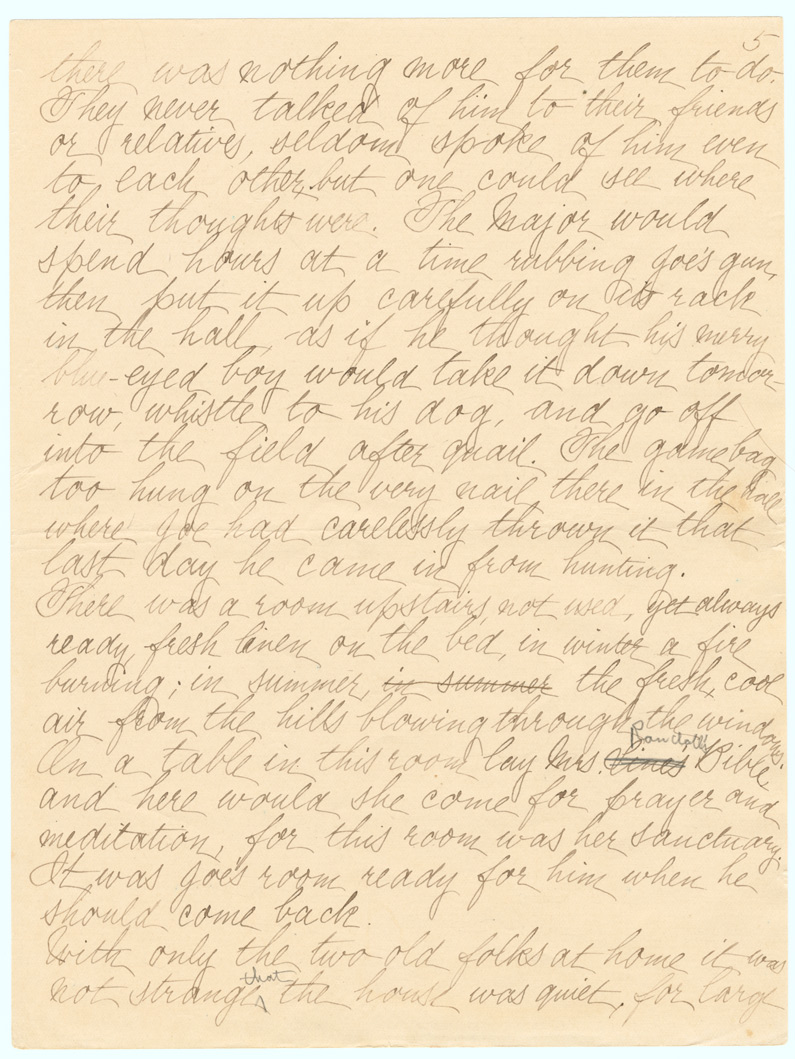 5
there was nothing more for them to do.
They never talked of him to their friends
or relatives, seldom spoke of him even
to each other, but one could see where
their thoughts were. The Major would
spend hours at a time rubbing Joe's gun,
then put it up carefully on its rack
in the hall, as if he thought his merry
blue-eyed boy would take it down tomor-
row, whistle to his dog, and go off
into the field after quail. The gamebag
too hung on the very nail there in the hall
where Joe had carelessly thrown it that
last day he came in from hunting.
There was a room upstairs, not used, yet always
ready, fresh linen on the bed, in winter a fire
burning; in summer, in summer the fresh, cool
air from the hills blowing through the windows.
On a table in this room lay Mrs. Bandolph Bible,
and here would she come for prayer and
meditation, for this room was her sanctuary.
It was Joe's room ready for him when he
should come back.
With only the two old folks at home it was
not strange that the house was quiet, for large